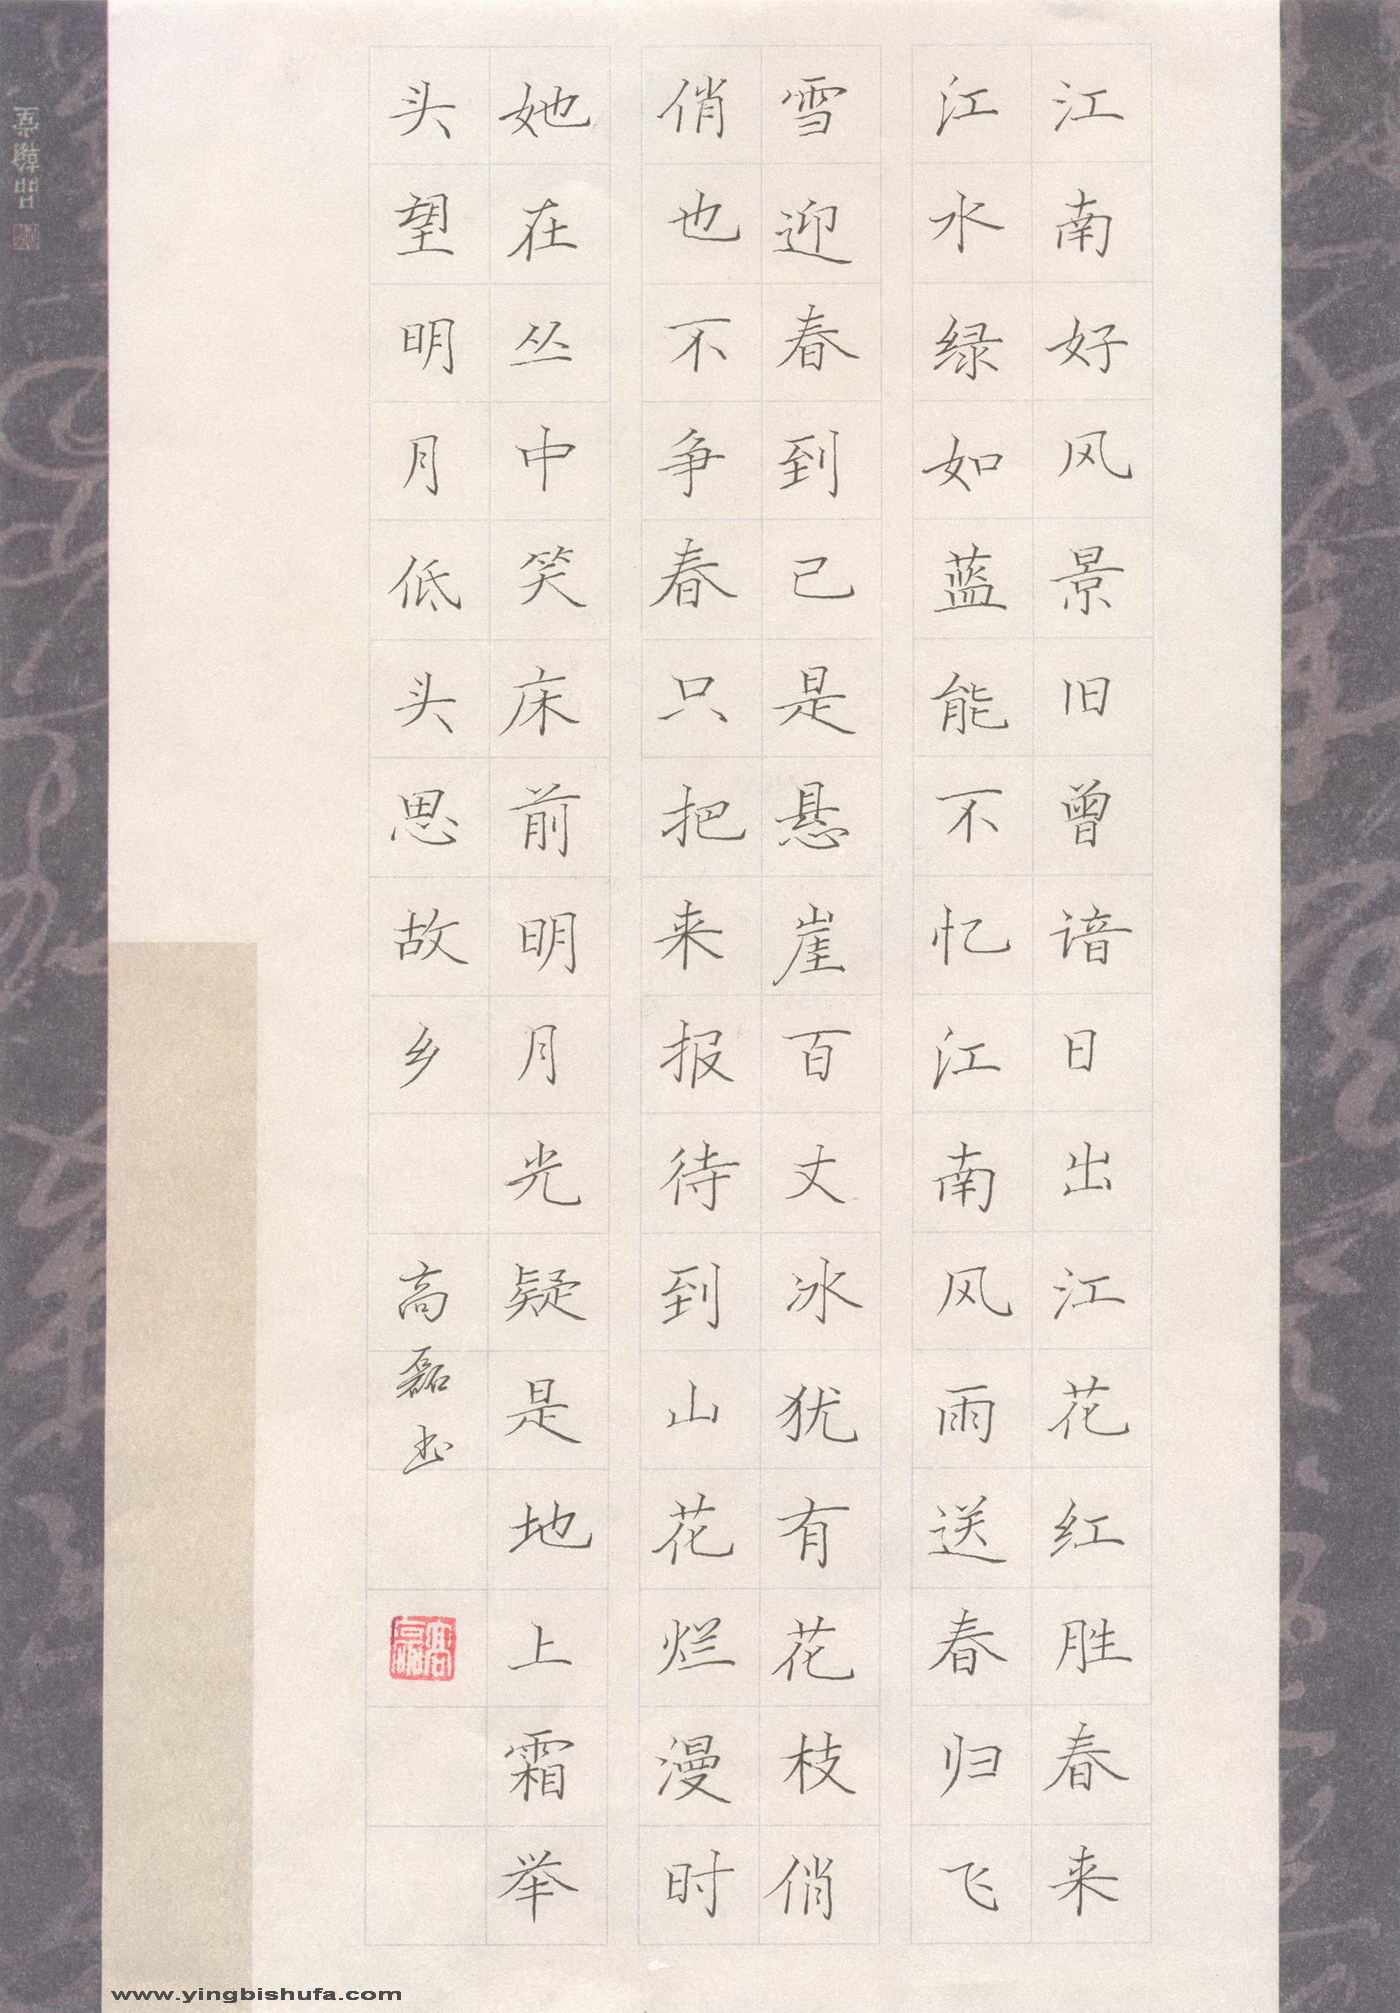 江南好风景旧曾谙日出江花红胜春来
江水绿如蓝能不忆江南风雨送春归飞
雪迎春到己是悬崖百丈冰犹有花枝俏
俏也不争春只把来报待到山花烂漫时
她在丛中笑床前明月光疑是地上霜举
头望明月低头思故乡
高磊书
www.yingbishufa.com